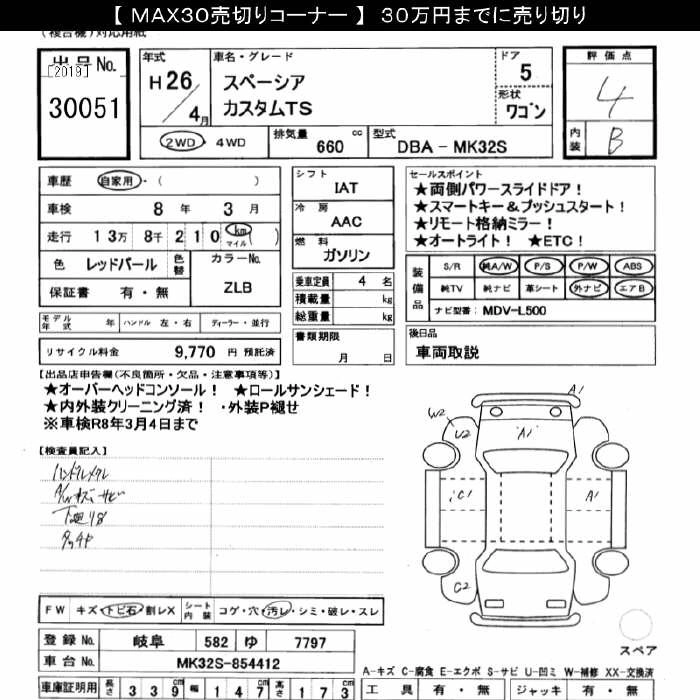 【 MAX30売切りコーナー 】 30万円までに売り切り
(複合機)対応用紙
出品No.
[2019]
30051
年式
H26/4月
車名・グレード
スペーシア
カスタムTS
ドア
5
形状
ワゴン
評価点
4
内装
B
2WD・4WD
排気量 660 cc
型式 DBA－MK32S
車歴 自家用・( )
車検 8年 3月
走行 13万 8千 210 km マイル ( )
色 レッドパール 色替
カラーNo.
ZLB
保証書 有・無
シフト
IAT
冷房
AAC
燃料
ガソリン
乗車定員 4 名
積載量 kg
総重量 kg
セールスポイント
★両側パワースライドドア！
★スマートキー＆プッシュスタート！
★リモート格納ミラー！
★オートライト！ ★ETC！
装備品
S/R 純A/W P/S P/W ABS
純TV 純ナビ 革シート 外ナビ エアB
ナビ型番: MDV-L500
モデル年式 年 ハンドル 左・右 ディーラー・並行
書類期限
月 日
後日品
車両取説
リサイクル料金 9,770 円 預託済
【出品店申告欄(不良箇所・欠品・注意事項等)】
★オーバーヘッドコンソール！ ★ロールサンシェード！
★内外装クリーニング済！ ・外装P褪せ
※車検R8年3月4日まで
【検査員記入】
A1
W2
U2
A1
C1
A1
C2
FW キズ・トビ石・割レX シート内装 コゲ・穴・汚レ・シミ・破レ・スレ
登録No. 岐阜 582 ゆ 7797
車台No. MK32S-854412
車庫証明用 長さ 339 cm 幅 147 cm 高さ 173 cm
スペア
A-キズ C-腐食 E-エクボ S-サビ U-凹ミ W-補修 XX-交換済
工具 有・無 ジャッキ 有・無